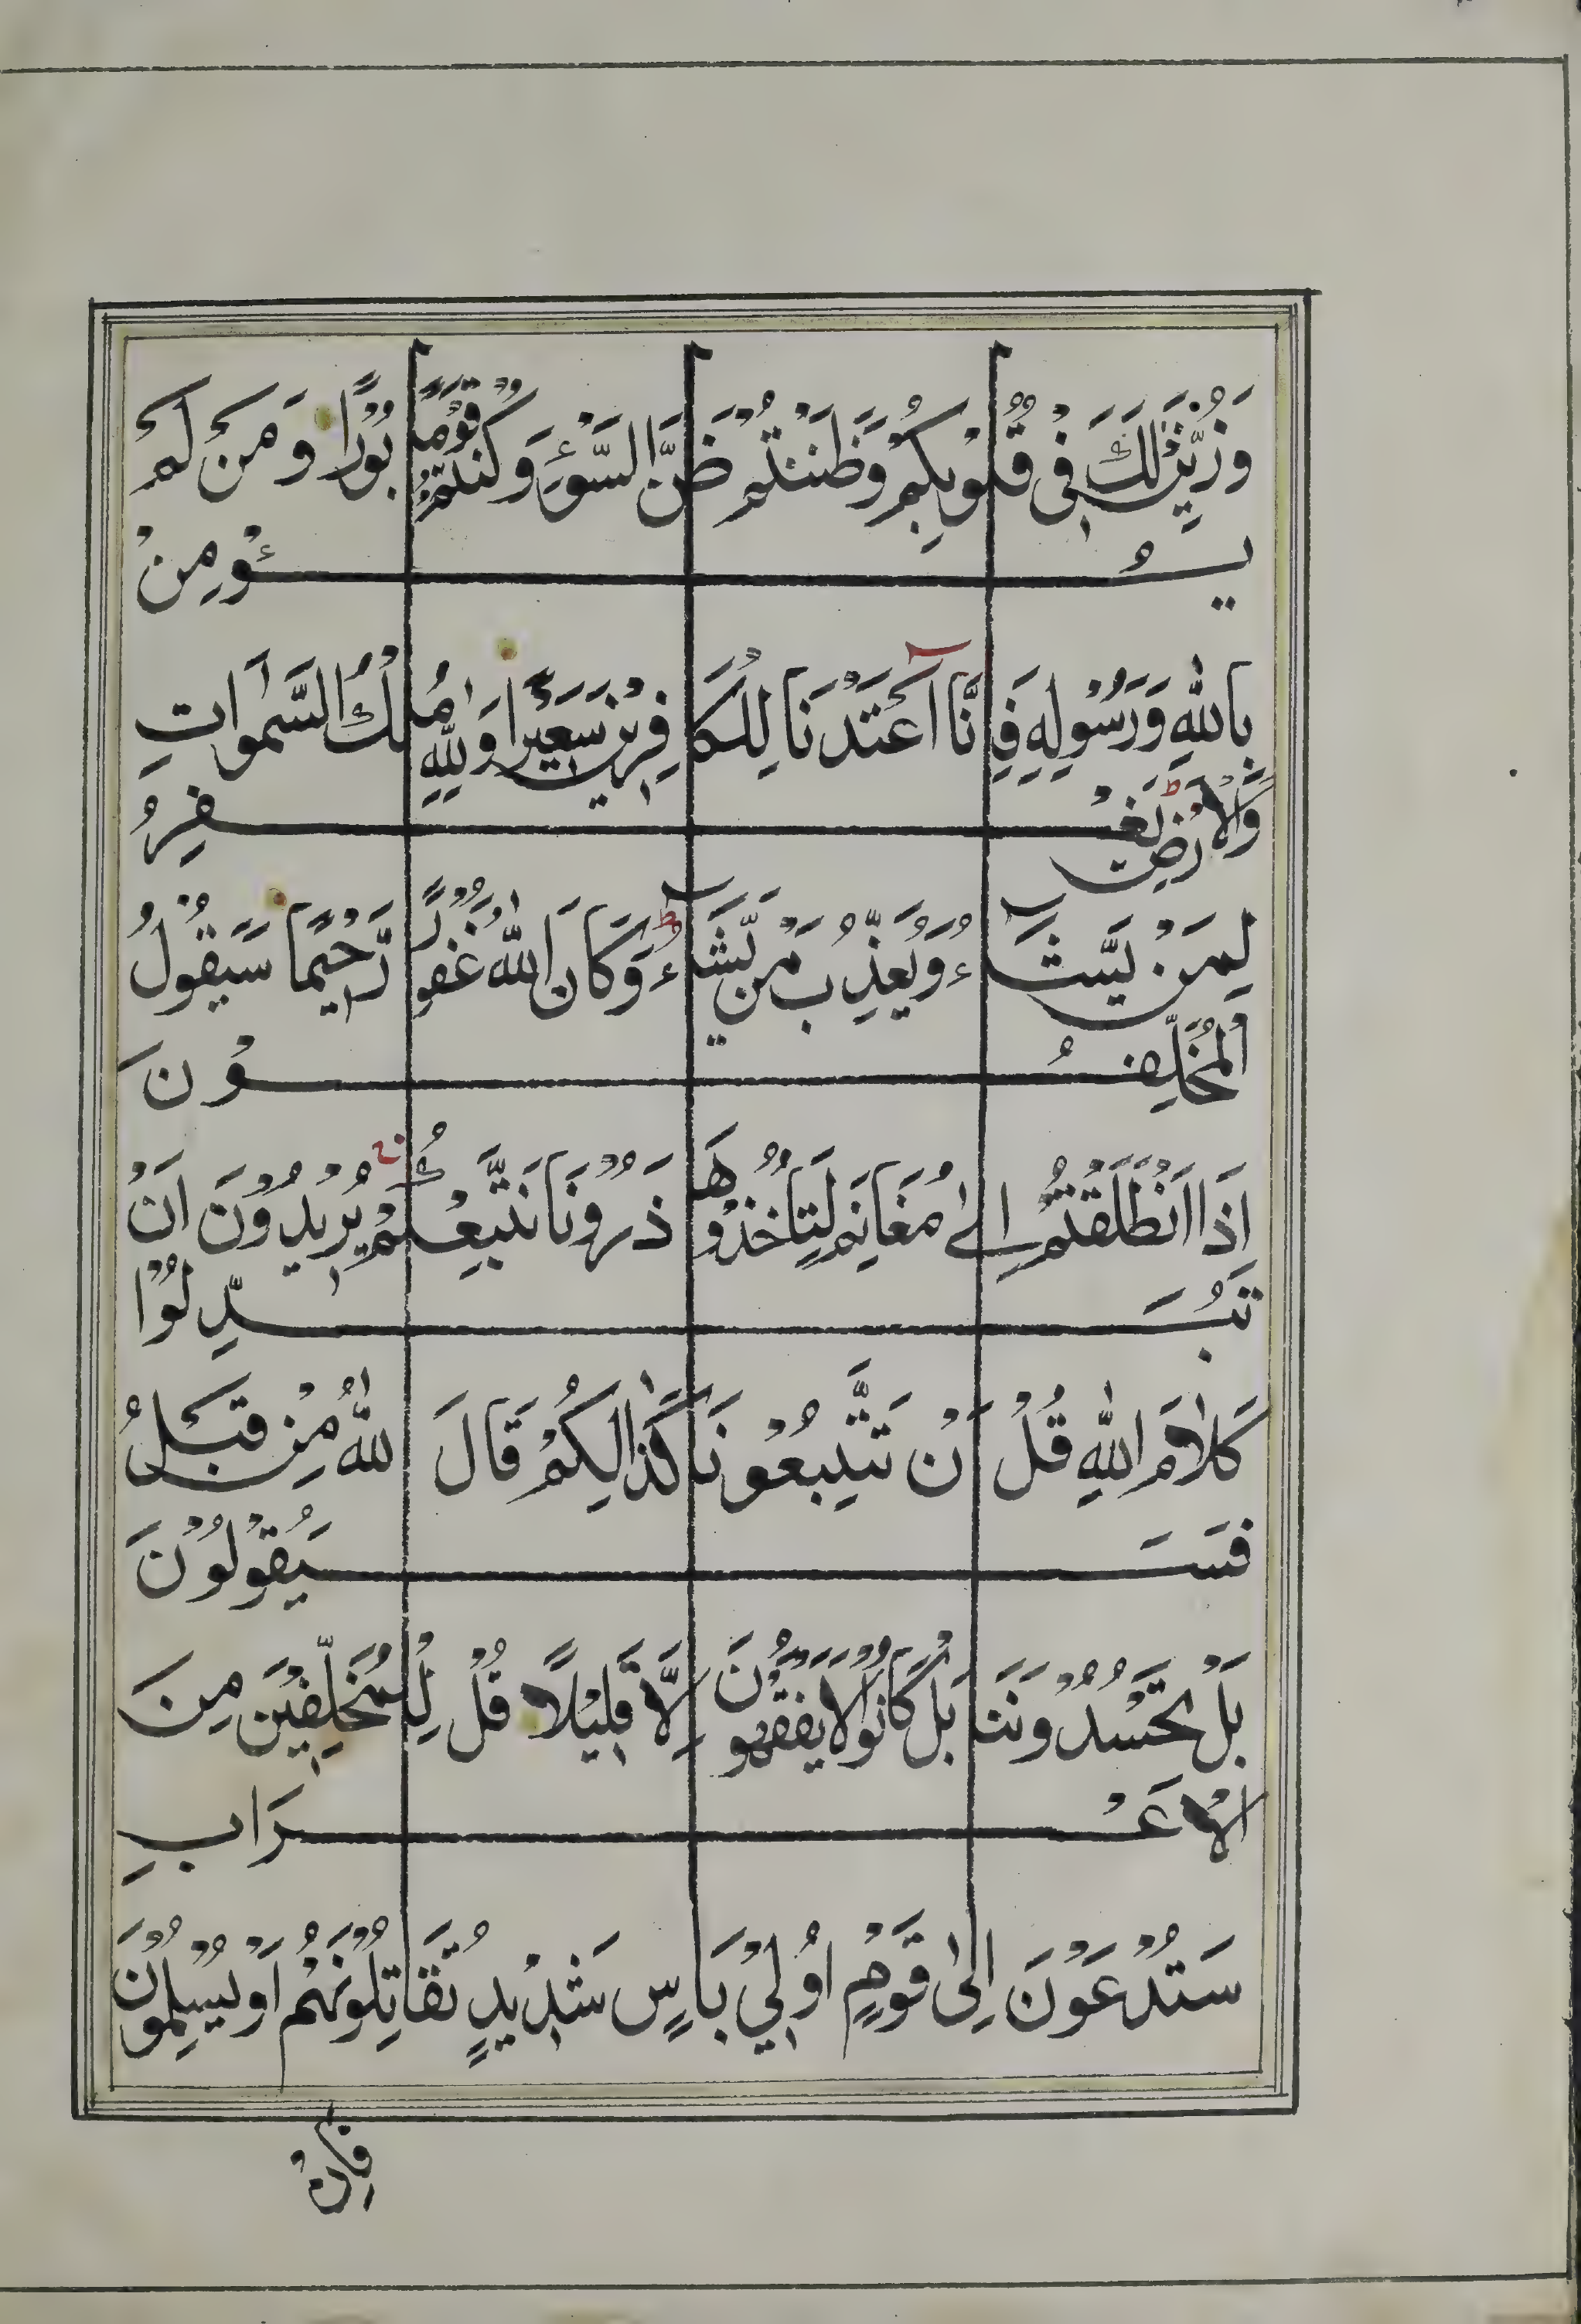 وَزُيِّنَ ذٰلِكَ فِى قُلُوْبِكُمْ وَظَنَنْتُمْ ظَنَّ السَّوْءِ وَكُنْتُمْ قَوْمًا بُوْرًا وَمَنْ لَمْ
يُؤْمِنْ
بِاللهِ وَرَسُوْلِهِ فَاِنَّا اَعْتَدْنَا لِلْكَافِرِيْنَ سَعِيْرًا وَلِلّٰهِ مُلْكُ السَّمٰوَاتِ
وَالْاَرْضِ يَغْفِرُ
لِمَنْ يَّشَاءُ وَيُعَذِّبُ مَنْ يَّشَاءُ وَكَانَ اللهُ غَفُوْرًا رَّحِيْمًا سَيَقُوْلُ
الْمُخَلَّفُوْنَ
اِذَا انْطَلَقْتُمْ اِلٰى مَغَانِمَ لِتَاْخُذُوْهَا ذَرُوْنَا نَتَّبِعْكُمْ يُرِيْدُوْنَ اَنْ
يُبَدِّلُوْا
كَلَامَ اللهِ قُلْ لَنْ تَتَّبِعُوْنَا كَذَالِكُمْ قَالَ اللهُ مِنْ قَبْلُ
فَسَيَقُوْلُوْنَ
بَلْ تَحْسُدُوْنَنَا بَلْ كَانُوْا لَا يَفْقَهُوْنَ اِلَّا قَلِيْلًا قُلْ لِلْمُخَلَّفِيْنَ مِنَ
الْاَعْرَابِ
سَتُدْعَوْنَ اِلٰى قَوْمٍ اُولِيْ بَاْسٍ شَدِيْدٍ تُقَاتِلُوْنَهُمْ اَوْ يُسْلِمُوْنَ
فَاِنْ